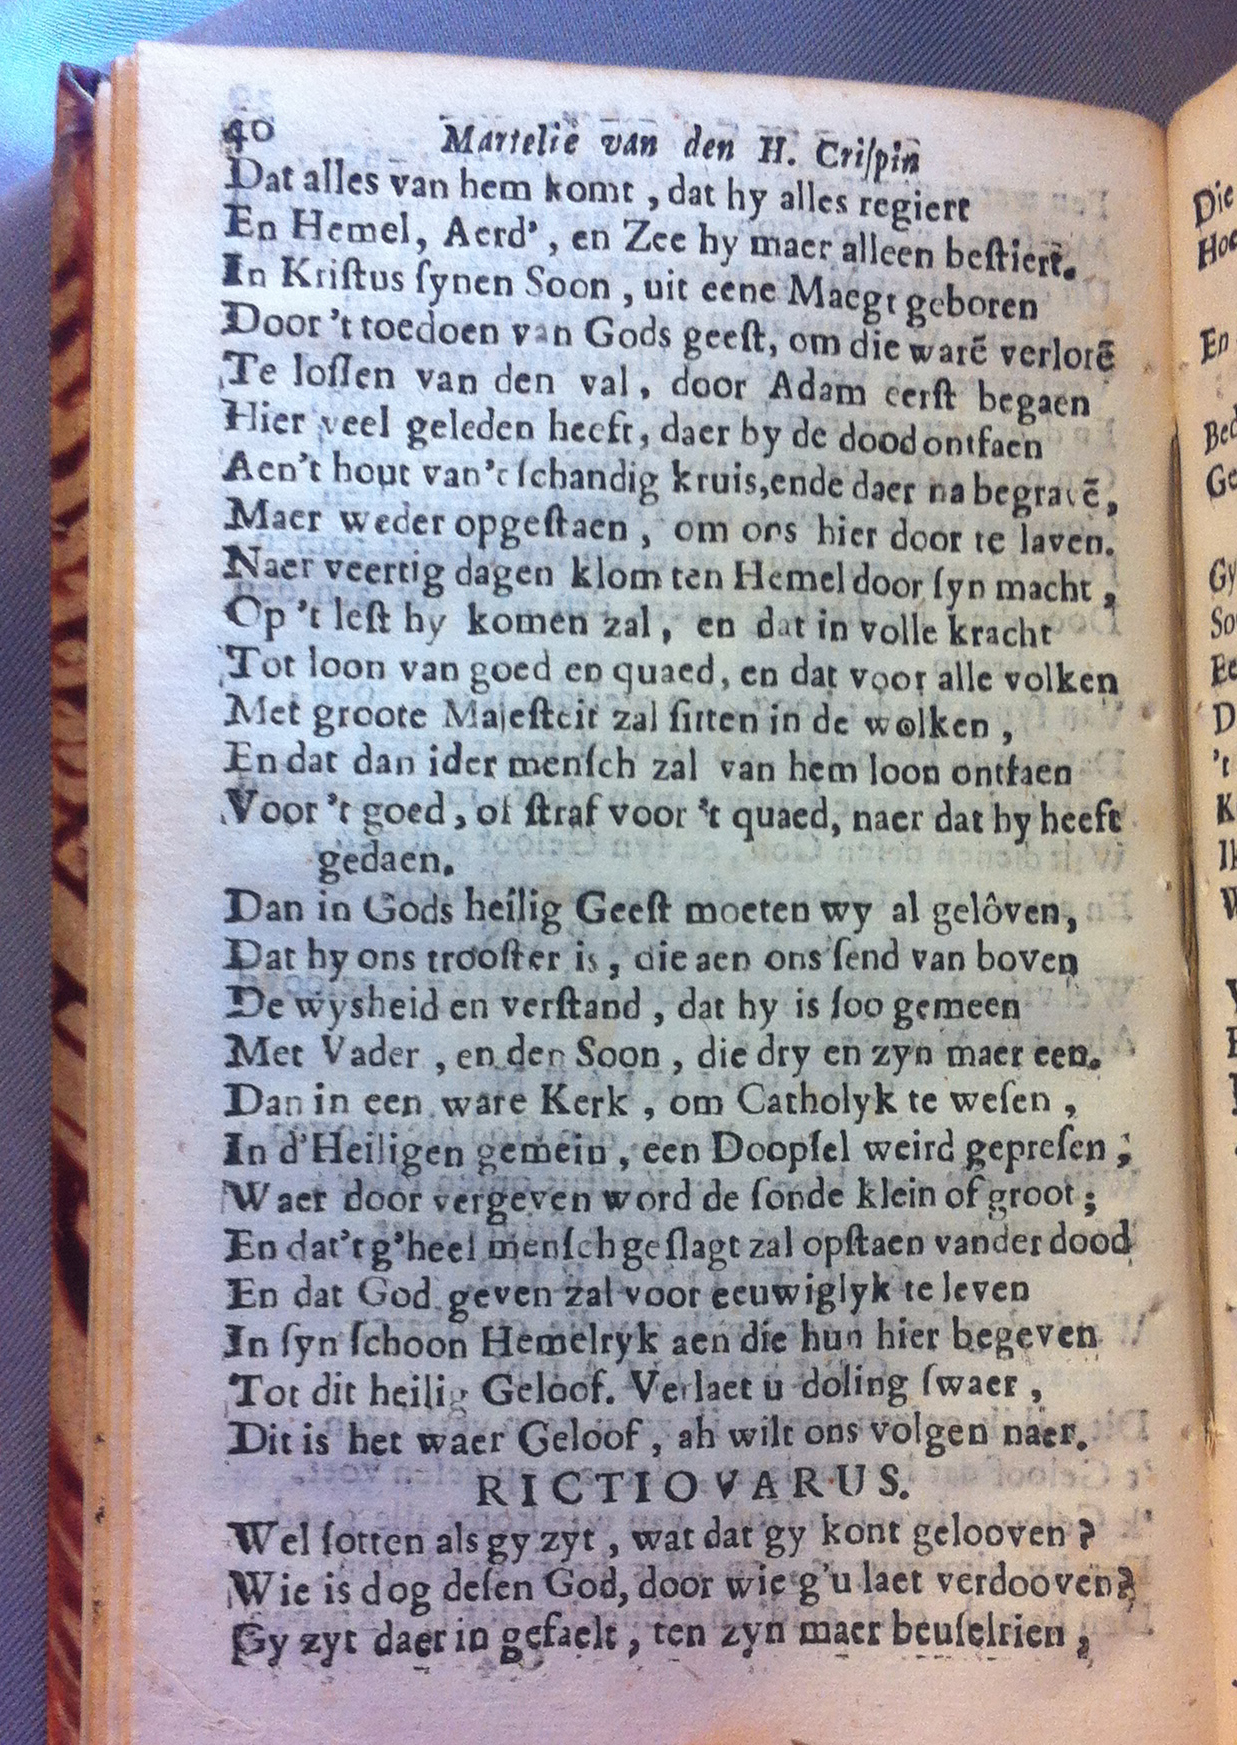 40 Martelie van den H. Criſpin
Dat alles van hem komt , dat hy alles regiert
En Hemel, Aerd' , en Zee hy maer alleen beſtiert.
In Kriſtus ſynen Soon , uit eene Maegt geboren
Door 't toedoen van Gods geeſt, om die warē verlorē
Te loſſen van den val , door Adam eerſt begaen
Hier veel geleden heeft, daer by de dood ontfaen
Aen't hout van't ſchandig kruis,ende daer na begravē,
Maer weder opgeſtaen , om ons hier door te laven.
Naer veertig dagen klom ten Hemel door ſyn macht ,
Op 't leſt hy komen zal , en dat in volle kracht
Tot loon van goed en quaed, en dat voor alle volken
Met groote Majeſteit zal ſitten in de wolken ,
En dat dan ider menſch zal van hem loon ontfaen
Voor 't goed , of ſtraf voor 't quaed, naer dat hy heeft
gedaen.
Dan in Gods heilig Geeſt moeten wy al gelôven,
Dat hy ons trooſter is , die aen ons ſend van boven
De wysheid en verſtand , dat hy is ſoo gemeen
Met Vader , en den Soon , die dry en zyn maer een.
Dan in een ware Kerk , om Catholyk te weſen ,
In d'Heiligen gemein , een Doopſel weird gepreſen ;
Waer door vergeven word de ſonde klein of groot ;
En dat't g'heel menſch geſlagt zal opſtaen vander dood
En dat God geven zal voor eeuwiglyk te leven
In ſyn ſchoon Hemelryk aen die hun hier begeven
Tot dit heilig Geloof. Verlaet u doling ſwaer ,
Dit is het waer Geloof , ah wilt ons volgen naer.
RICTIOVARUS.
Wel ſotten als gy zyt , wat dat gy kont gelooven ?
Wie is dog deſen God, door wie g'u laet verdooven?
Gy zyt daer in gefaelt , ten zyn maer beuſelrien ,
Die
En
Bed
Gy
't